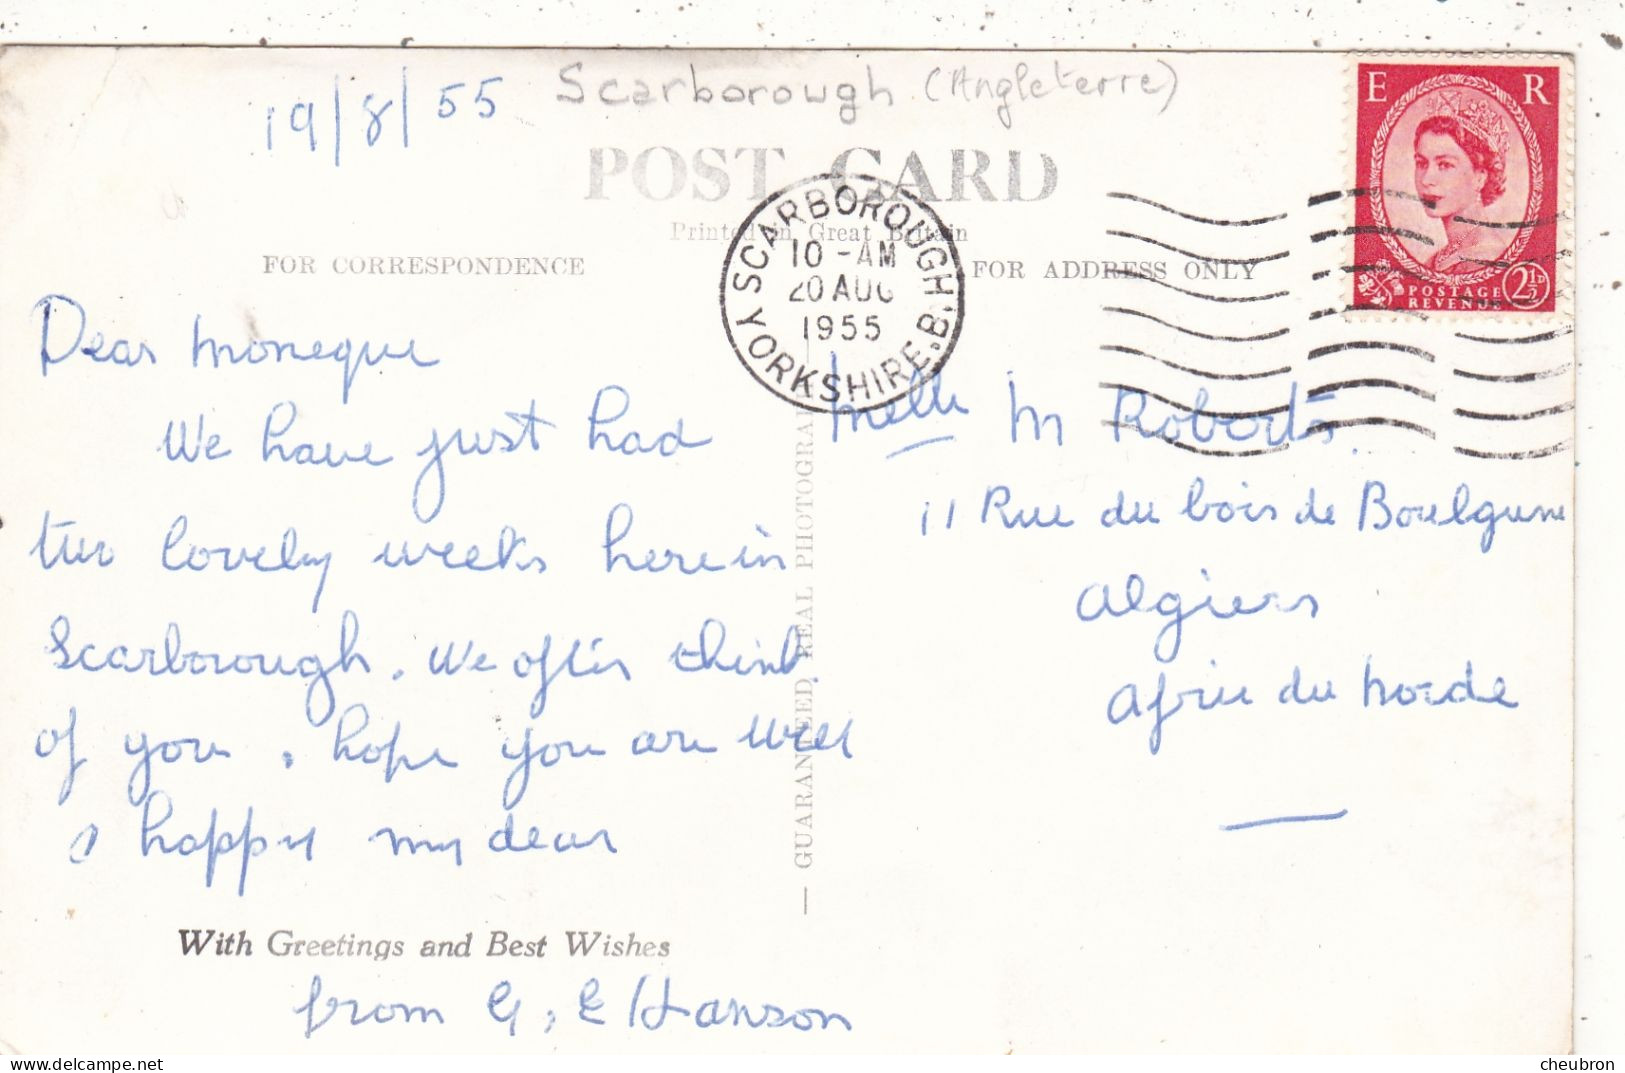 19/8/55
Scarborough (Angleterre)
POST CARD
Printed in Great Britain
FOR CORRESPONDENCE
FOR ADDRESS ONLY
SCARBOROUGH
10-AM
20 AUG
1955
YORKSHIRE.B.
E R
POSTAGE
REVENUE
2½D
Dear Moneque
We have just had
two lovely weeks here in
Scarborough. We often think
of you, hope you are well
& happy my dear
With Greetings and Best Wishes
from G, E Hanson
— GUARANTEED REAL PHOTOGRAPH
Melle M Roberts
11 Rue du bois de Boulgune
Algiers
Afrie du Norde
cheubron
delcampe.net